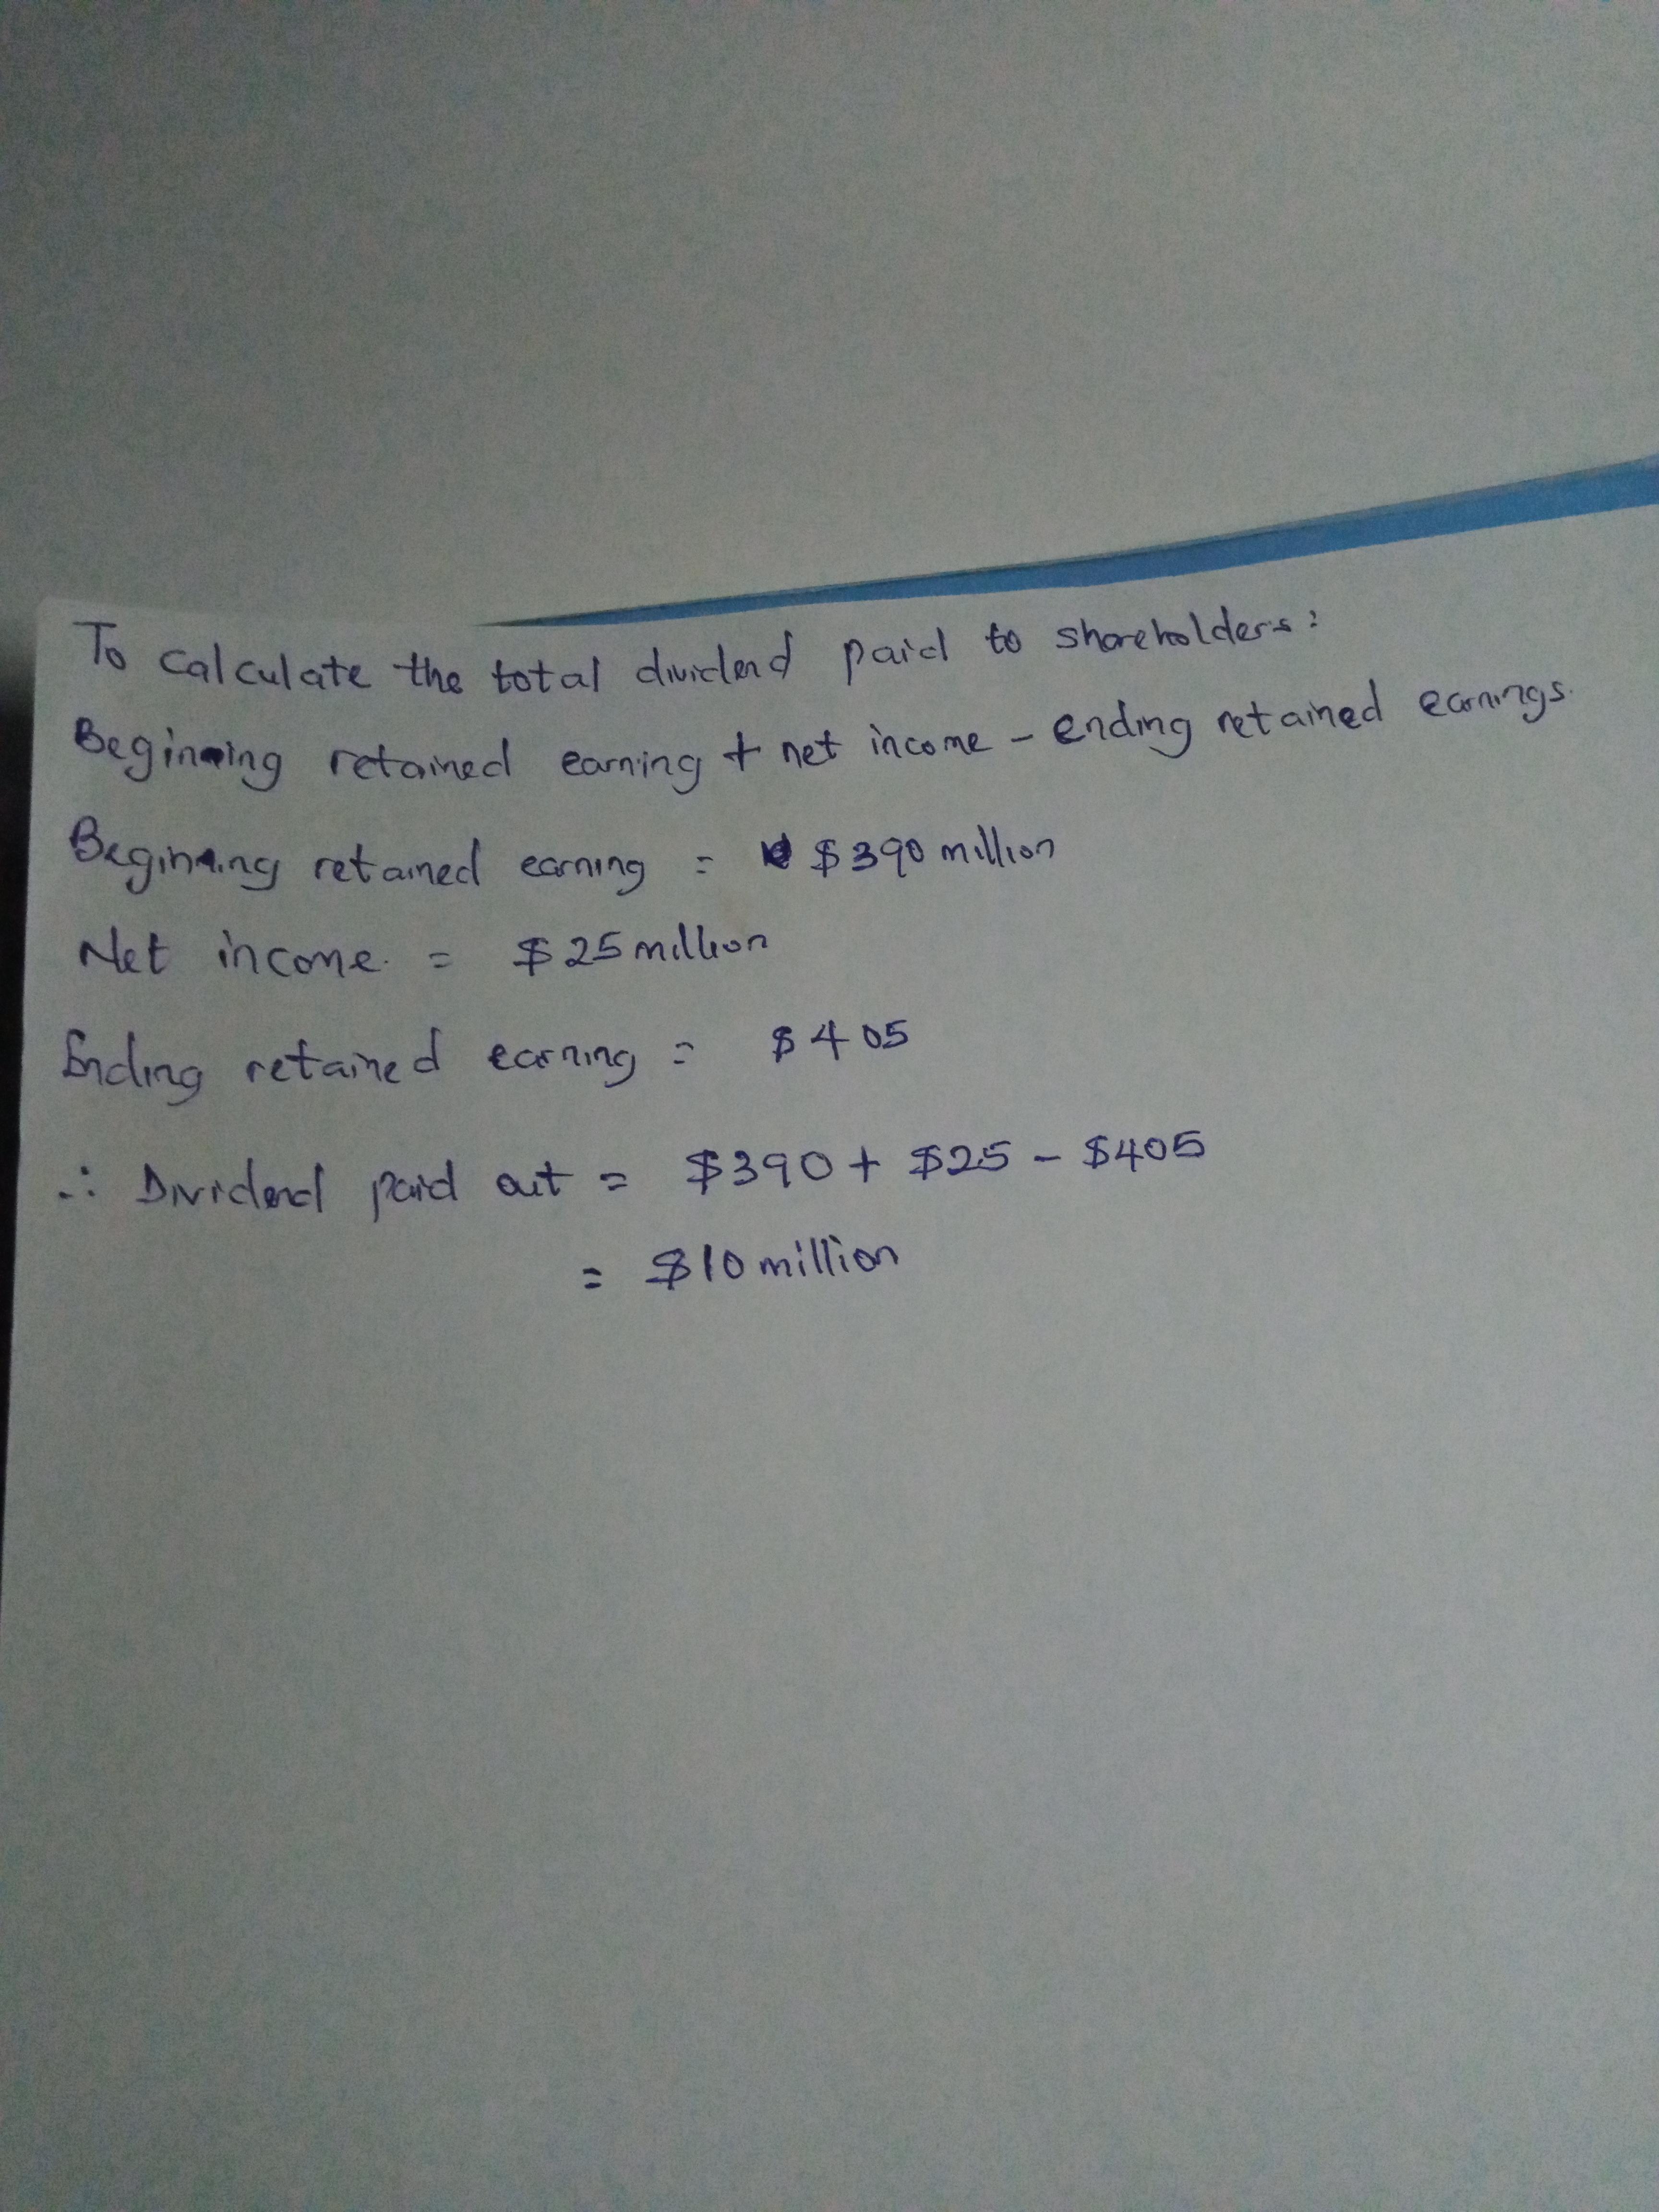 To calculate the total dividend paid to shareholders:
Beginning retained earning + net income - ending retained earnings.
Beginning retained earning = $390 million
Net income. = $25 million
Ending retained earning = $405
∴ Dividend paid out = $390 + $25 - $405
= $10 million